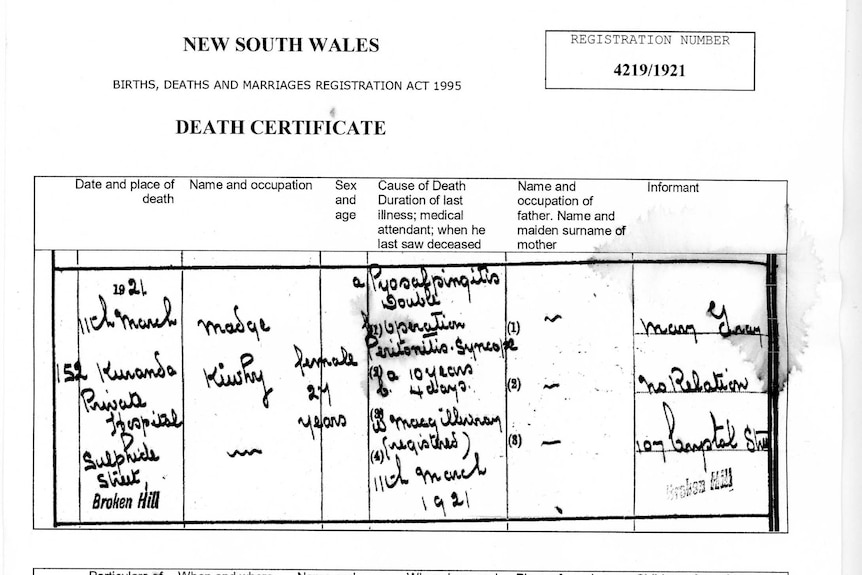 NEW SOUTH WALES
REGISTRATION NUMBER
4219/1921
BIRTHS, DEATHS AND MARRIAGES REGISTRATION ACT 1995
DEATH CERTIFICATE
Date and place of
death
Name and occupation
Sex
and
age
Cause of Death
Duration of last
illness; medical
attendant; when he
last saw deceased
Name and
occupation of
father. Name and
maiden surname of
mother
Informant
1921
11th March
152 Kuranda
Private
Hospital
Sulphide
Street,
Broken Hill
Madge
Kiwhy
~
female
27
years
a Pyosalpingitis
Double
b (1) Operation
Peritonitis. Syncope
(2) a 10 years
b. 4 days.
(3)
Macgillivray
(registered)
(4)
11th March
1921
(1) ~
(2) —
(3) —
Mary Gray
No Relation
107 Crystal Street
Broken Hill
Particulars of
When and where